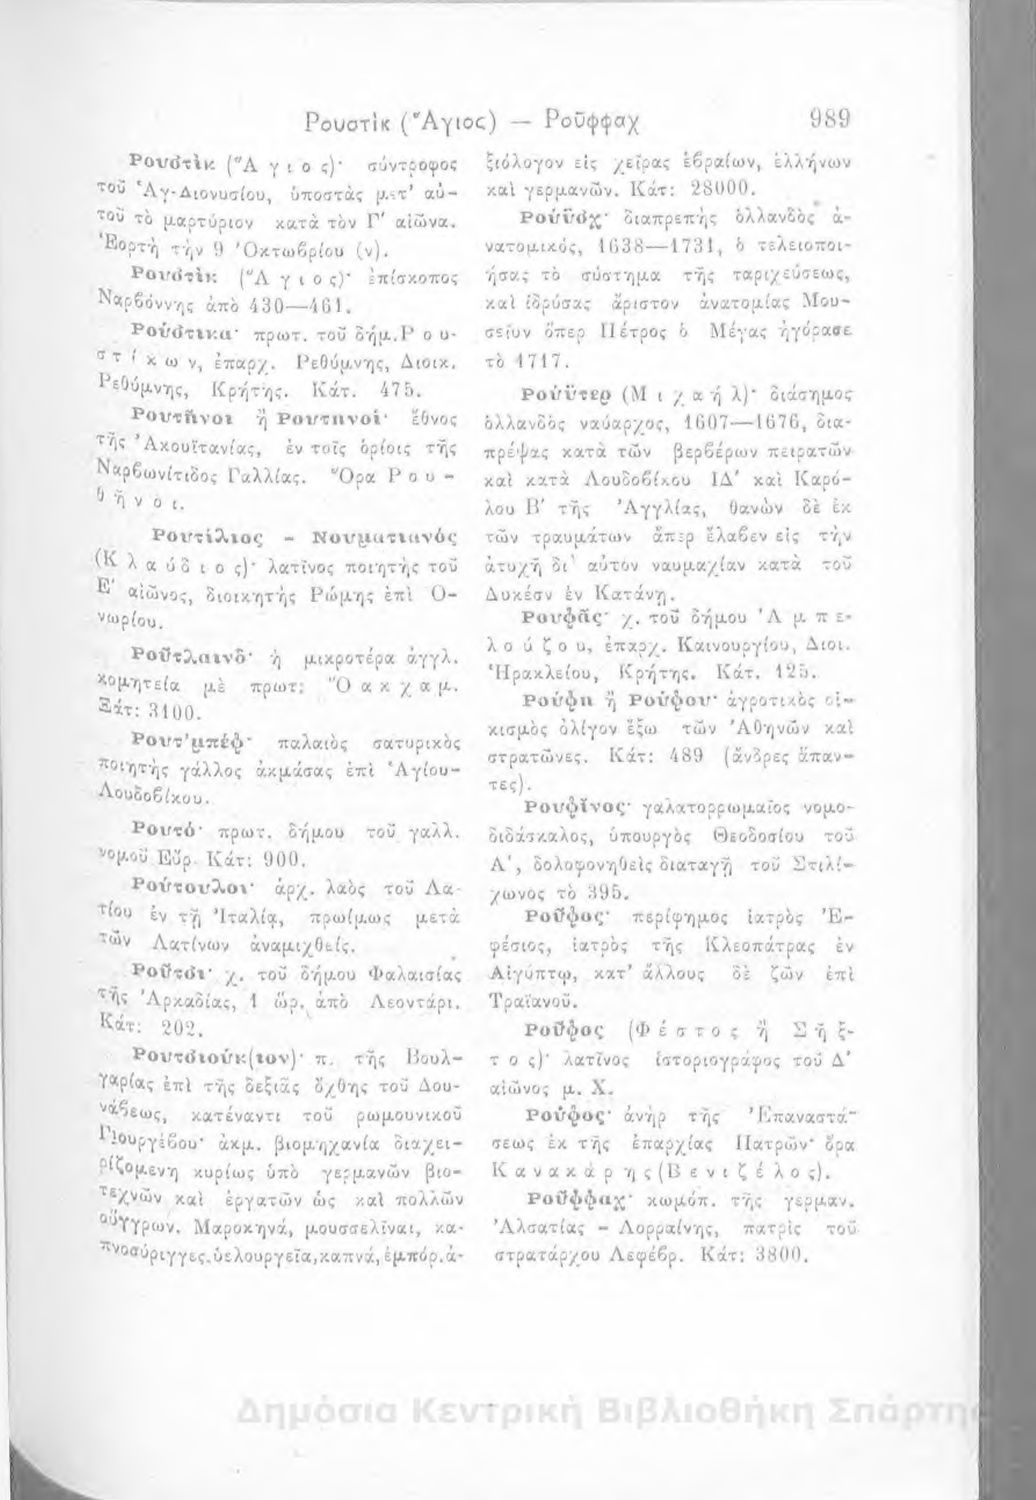 Ρουστὶκ (Ἅγιος) — Ροῦφφαχ 989
Ρουστὶκ (Ἅ γ ι ο ς)· σύντροφος
τοῦ Ἁγ-Διονυσίου, ὑποστὰς μετ’ αὐ-
τοῦ τὸ μαρτύριον κατὰ τὸν Γ′ αἰῶνα.
Ἑορτὴ τὴν 9 Ὀκτωβρίου (ν).
Ρουστὶκ (Ἅ γ ι ο ς)· ἐπίσκοπος
Ναρβόννης ἀπὸ 430—461.
Ρούστικα· πρωτ. τοῦ δήμ. Ρ ο υ-
σ τ ί κ ω ν, ἐπαρχ. Ρεθύμνης, Διοικ.
Ρεθύμνης, Κρήτης. Κάτ. 475.
Ρουτῆνοι ἢ Ρουτηνοί· ἔθνος
τῆς Ἀκουϊτανίας, ἐν τοῖς ὁρίοις τῆς
Ναρβωνίτιδος Γαλλίας. Ὅρα Ρ ο υ -
θ ή ν ο ι.
Ρουτίλιος - Νουματιανός
(Κ λ α ύ δ ι ο ς)· λατῖνος ποιητὴς τοῦ
Ε′ αἰῶνος, διοικητὴς Ρώμης ἐπὶ Ὀ-
νωρίου.
Ροῦτλαινδ· ἡ μικροτέρα ἀγγλ.
κομητεία μὲ πρωτ: Ὄ α κ χ α μ.
Κάτ: 3100.
Ρουτ’μπέφ· παλαιὸς σατυρικὸς
ποιητὴς γάλλος ἀκμάσας ἐπὶ Ἁγίου-
Λουδοβίκου.
Ρουτό· πρωτ. δήμου τοῦ γαλλ.
νομοῦ Εὔρ. Κάτ: 900.
Ρούτουλοι· ἀρχ. λαὸς τοῦ Λα-
τίου ἐν τῇ Ἰταλίᾳ, πρωίμως μετὰ
τῶν Λατίνων ἀναμιχθείς.
Ροῦτσι· χ. τοῦ δήμου Φαλαισίας
τῆς Ἀρκαδίας, 1 ὥρ. ἀπὸ Λεοντάρι.
Κάτ: 202.
Ρουτσιούκ(ιον)· π. τῆς Βουλ-
γαρίας ἐπὶ τῆς δεξιᾶς ὄχθης τοῦ Δου-
νάβεως, κατέναντι τοῦ ρωμουνικοῦ
Γιουργέβου· ἀκμ. βιομηχανία διαχει-
ριζομένη κυρίως ὑπὸ γερμανῶν βιο-
τεχνῶν καὶ ἐργατῶν ὡς καὶ πολλῶν
οὕγγρων. Μαροκηνά, μουσσελῖναι, κα-
πνοσύριγγες, ὑελουργεῖα, καπνά, ἐμπόρ. ἀ-
ξιόλογον εἰς χεῖρας ἑβραίων, ἑλλήνων
καὶ γερμανῶν. Κάτ: 28000.
Ρούϋσχ· διαπρεπὴς ὁλλανδὸς ἀ-
νατομικός, 1638—1731, ὁ τελειοποι-
ήσας τὸ σύστημα τῆς ταριχεύσεως,
καὶ ἱδρύσας ἄριστον ἀνατομίας Μου-
σεῖον ὅπερ Πέτρος ὁ Μέγας ἠγόρασε
τὸ 1717.
Ρούϋτερ (Μ ι χ α ὴ λ)· διάσημος
ὁλλανδὸς ναύαρχος, 1607—1676, δια-
πρέψας κατὰ τῶν βερβέρων πειρατῶν
καὶ κατὰ Λουδοβίκου ΙΔ′ καὶ Καρό-
λου Β′ τῆς Ἀγγλίας, θανὼν δὲ ἐκ
τῶν τραυμάτων ἅπερ ἔλαβεν εἰς τὴν
ἀτυχῆ δι’ αὐτὸν ναυμαχίαν κατὰ τοῦ
Δυκέσν ἐν Κατάνῃ.
Ρουφᾶς· χ. τοῦ δήμου Ἀ μ π ε-
λ ο ύ ζ ο υ, ἐπαρχ. Καινουργίου, Διοι.
Ἡρακλείου, Κρήτης. Κάτ. 125.
Ρούφη ἢ Ρούφου· ἀγροτικὸς οἰ-
κισμὸς ὀλίγον ἔξω τῶν Ἀθηνῶν καὶ
στρατῶνες. Κάτ: 489 (ἄνδρες ἅπαν-
τες).
Ρουφῖνος· γαλατορρωμαῖος νομο-
διδάσκαλος, ὑπουργὸς Θεοδοσίου τοῦ
Α′, δολοφονηθεὶς διαταγῇ τοῦ Στιλί-
χωνος τὸ 395.
Ροῦφος· περίφημος ἰατρὸς Ἐ-
φέσιος, ἰατρὸς τῆς Κλεοπάτρας ἐν
Αἰγύπτῳ, κατ’ ἄλλους δὲ ζῶν ἐπὶ
Τραϊανοῦ.
Ροῦφος (Φ έ σ τ ο ς ἢ Σ ῆ ξ-
τ ο ς)· λατῖνος ἱστοριογράφος τοῦ Δ′
αἰῶνος μ. Χ.
Ροῦφος· ἀνὴρ τῆς Ἐπαναστά-
σεως ἐκ τῆς ἐπαρχίας Πατρῶν· ὅρα
Κ α ν α κ ά ρ η ς (Β ε ν ι ζ έ λ ο ς).
Ροῦφφαχ· κωμόπ. τῆς γερμαν.
Ἀλσατίας - Λορραίνης, πατρὶς τοῦ
στρατάρχου Λεφέβρ. Κάτ: 3800.
Δημόσια Κεντρική Βιβλιοθήκη Σπάρτης